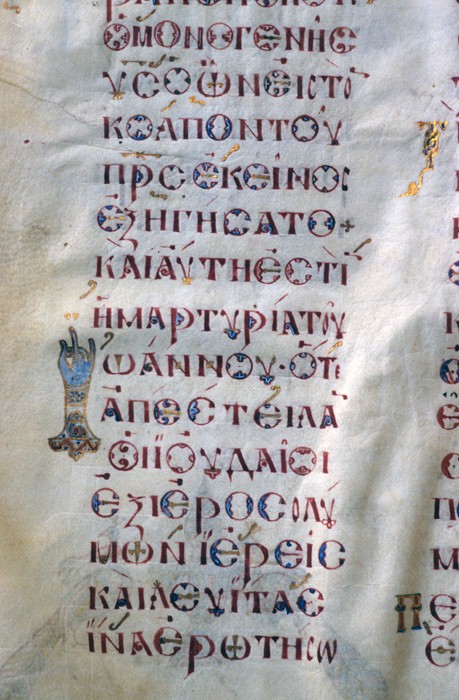 ΟΜΟΝΟΓΕΝΗϹ
ΥϹΟΩΝΕΙϹΤΟ
ΚΟΛΠΟΝΤΟΥ
ΠΡϹΕΚΕΙΝΟϹ
ΕΞΗΓΗϹΑΤΟ+
ΚΑΙΑΥΤΗΕϹΤΙ
ΗΜΑΡΤΥΡΙΑΤΟΥ
ΙΩΑΝΝΟΥ·ΟΤΕ
ΑΠΕϹΤΕΙΛΑ
ΟΙΪΟΥΔΑΙΟΙ
ΕΞΙΕΡΟϹΟΛΥ
ΜΩΝΪΕΡΕΙϹ
ΚΑΙΛΕΥΪΤΑϹ
ΪΝΑΕΡΩΤΗϹΩ